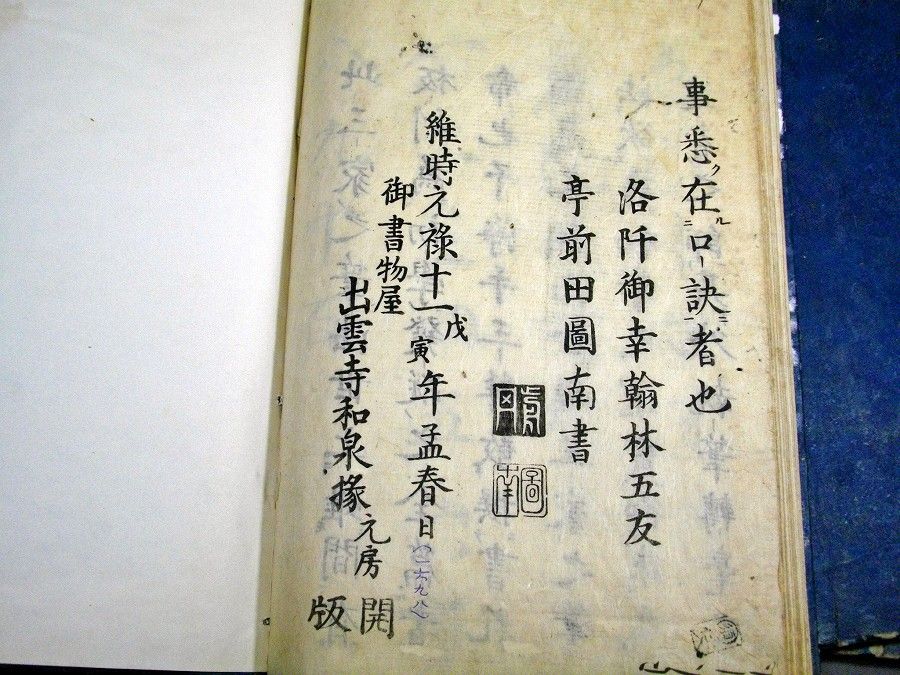 事悉ク在ルニ口訣ニ者也
洛阡御幸翰林五友
亭前田圖南書
前田
圖南
維時元祿十一戊寅年孟春日(一六九八)
御書物屋
出雲寺和泉掾元房
開版